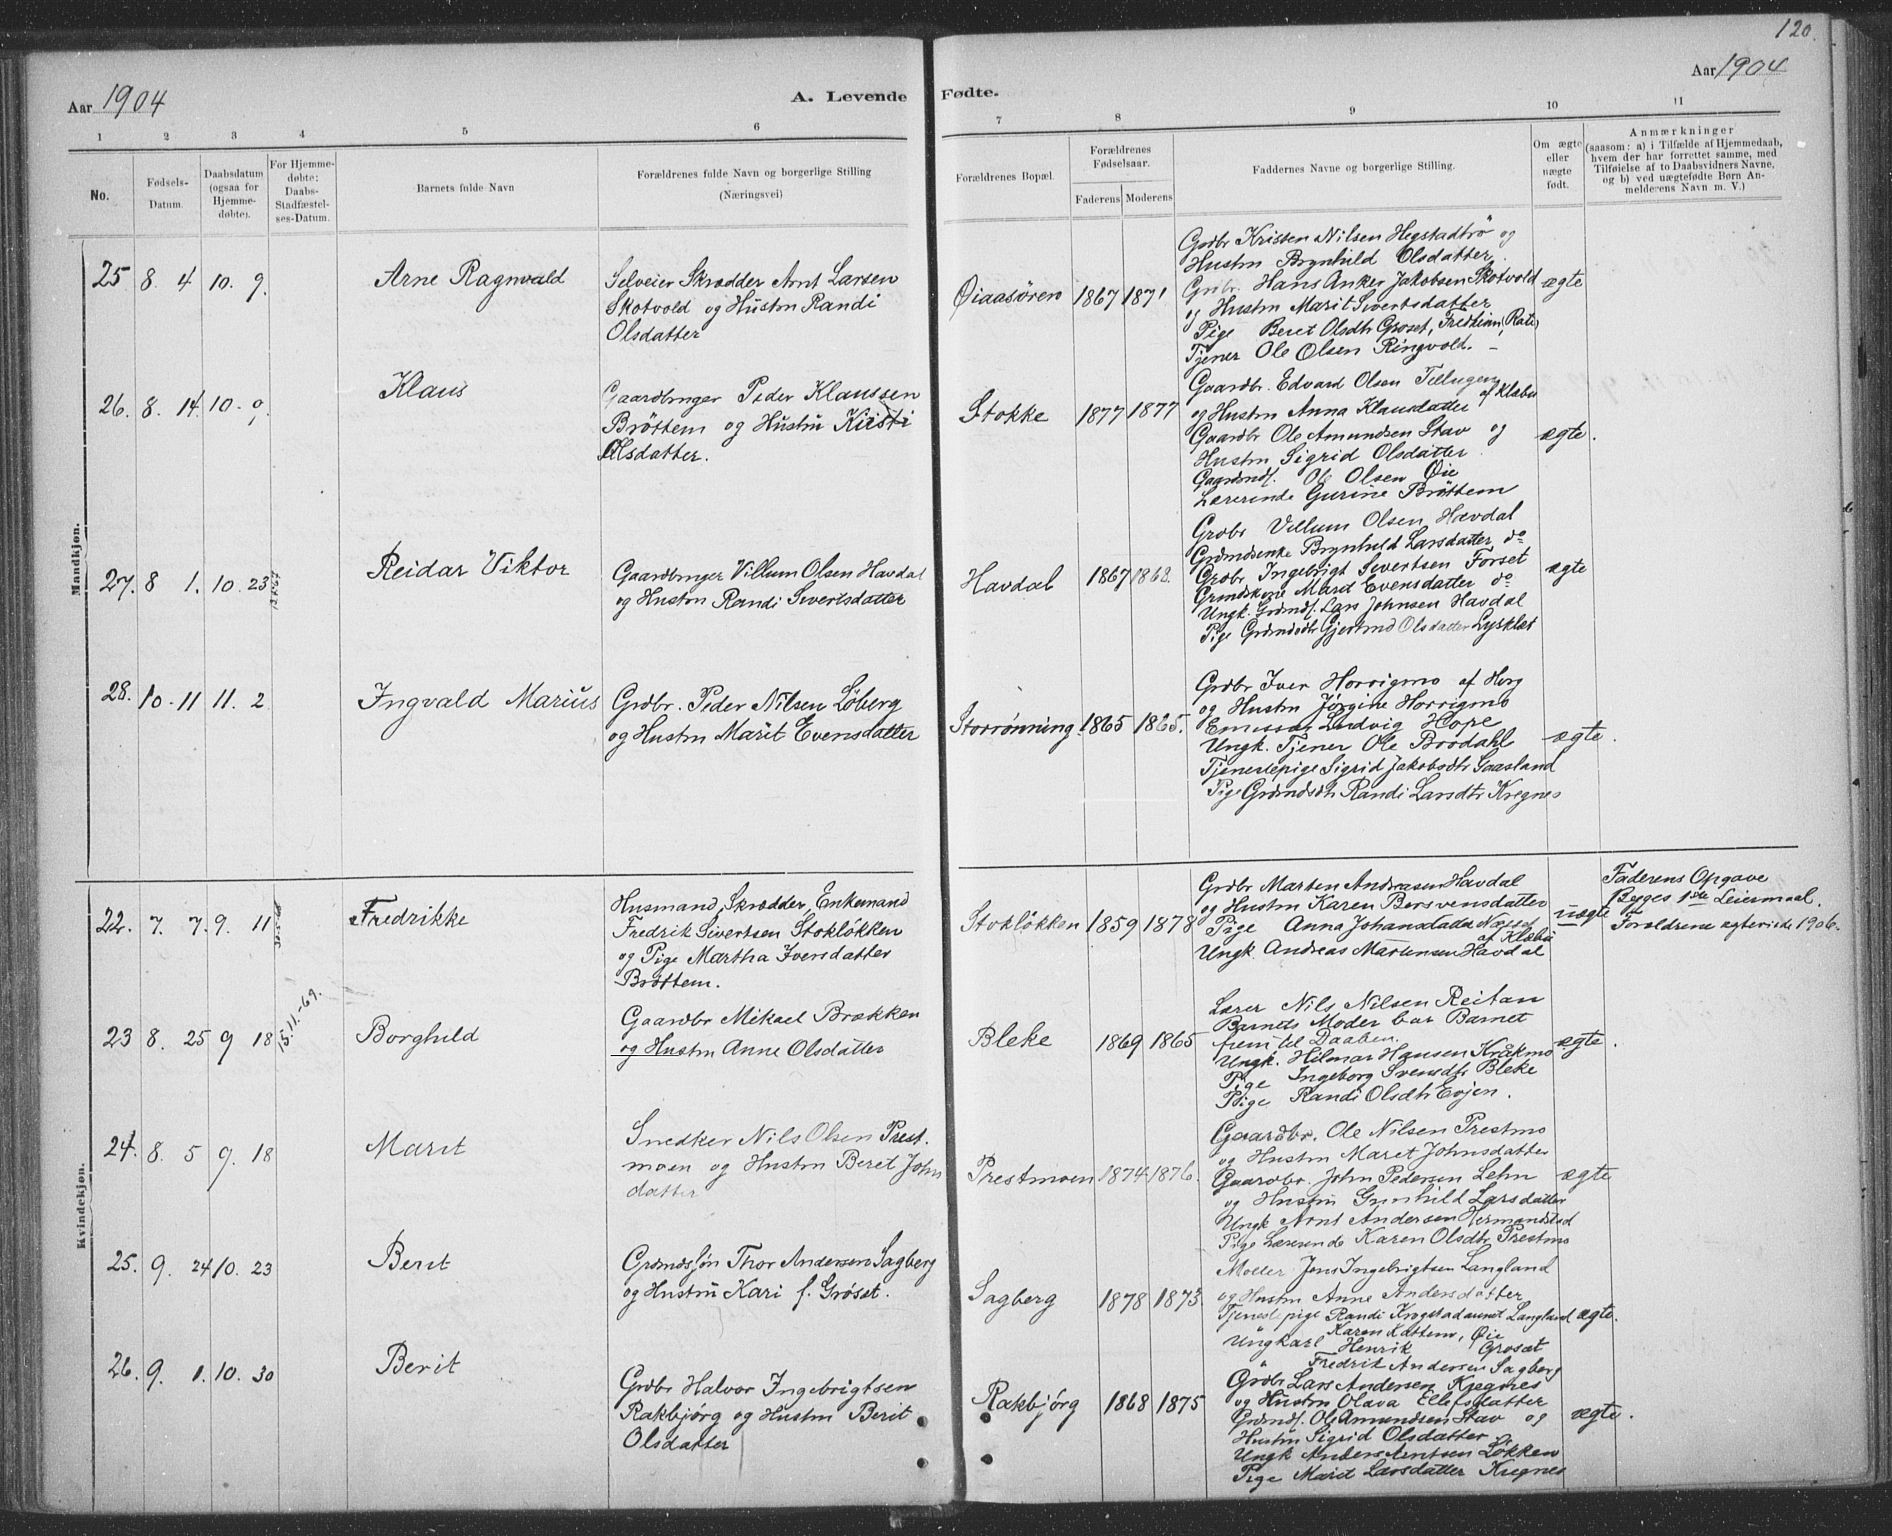 120.
Aar 1904
A. Levende Fødte.
Aar 1904
1 2 3 4 5 6 7 8 9 10 11
No.
Fødsels-Datum.
Daabsdatum (ogsaa for Hjemme-døbte).
For Hjemme-døbte: Daabs-Stadfæstel-ses-Datum.
Barnets fulde Navn
Forældrenes fulde Navn og borgerlige Stilling (Næringsvei)
Forældrenes Bopæl.
Forældrenes Fødselsaar.
Faderens Moderens
Faddernes Navne og borgerlige Stilling.
Om ægte eller uægte født.
Anmærkninger
(saasom: a) i Tilfælde af Hjemmedaab,
hvem der har forrettet samme, med
Tilføielse af to Daabsvidners Navne,
og b) ved uægtefødte Børn An-
melderens Navn m. V.)
Mandkjøn.
25 8 4 10. 9. Arne Ragnvald
Selveier Skrædder Arnt Larsen
Skotvold og Hustru Randi
Olsdatter
Øiaasøren 1867 1871
Grdbr Kristen Nilsen Hegstadtrö og
Hustru Brynhild Olsdatter.
Grdbr. Hans Anker Jakobsen Skotvold
og Hustru Marit Sivertsdatter
Pige Beret Olsdtr Groset,
Tjener Ole Olsen Ringvold. –
ægte
26. 8. 14. 10. 9. Klaus
Gaardbruger Peder Klaussen
Bröttem og Hustrü Kirsti
Olsdatter.
Stokke 1877 1877
Gaardbr. Edvard Olsen Tellugen
af Klæbu
og Hustru Anna Klausdatter
Gaardbr Ole Amundsen Stav og
Hustru Sigrid Olsdatter
Gaardmds. Ole Olsen Øie
Lærerinde Gurine Bröttem
ægte.
27. 8 1. 10. 23 Reidar Viktor
Gaardbruger Villum Olsen Havdal
og Hustru Randi Sivertsdatter
Havdal 1867 1868.
Grdbr Villum Olsen Hævdal
Grdmdsenke Brynhild Larsdatter do
Grdbr Ingebrigt Sivertsen Forset
Grmdskone Marit Evensdatter do
Ungk. Grdmds. Lars Johnsen Havdal
Pige Grdmdsdtr Gjertrud Olsdatter Lysklæt
ægte
28. 10. 11 11. 2 Ingvald Marius
Grdbr. Peder Nilsen Løberg
og Hustru Marit Evensdatter
Storrönning. 1865 1865.
Grdbr Iver Horrigmo af Horg
og Hustru Jørgine Horrigmo
Emissær Ludvig Hope
Ungk. Tjener Ole Brodahl
Tjenestepige Sigrid Jakobsdtr Gaasland
Pige Grdmdsdtr Randi Larsdtr Kregnes
ægte.
Kvindekjøn.
22. 7. 7. 9. 11 Fredrikke
Husmand, Skrædder, Enkemand
Fredrik Sivertsen Stoklökken
og Pige Martha Iversdatter
Bröttem.
Stoklökken 1859 1878
Grdbr Marten Andreasen Havdal
og Hustru Karen Bersvensdatter
Pige Anna Johansdatter
af Klæbu
Ungk. Andreas Martensen Havdal
uægte
Faderens Opgave
Begges 1ste Leiermaal.
Foraldrene ægteviede 1906.
23 8. 25 9 18 15.11.-69. Borghild
Gaardbr Mikael Brækken
og Hustru Anne Olsdatter
Bleke 1869 1865
Lærer Nils Nilsen Reitan
Barnets Moder bar Barnet
frem til Daaben.
Ungk. Hilmar Hansen Kråkmo
Pige Ingeborg Svensdtr Bleke
Pige Randi Olsdtr Evjen.
ægte.
24. 8. 5 9. 18 Marit
Snedker Nils Olsen Prest-
moen og Hustru Beret John
datter
Prestmoen 1874 1876.
Gaardbr. Ole Nilsen Prestmo
og Hustru Maret Johnsdatter
Gaardbr. John Pedersen Lehn
og Hustru Gunhild Larsdatter
Ungk Arnt Andersen Hermandstad
Pige Lærerinde Karen Olsdtr Prestmo
ægte
25. 9. 24 10. 23 Berit
Grdmdssön Thor Andersen Sagberg
og Hustrü Kari f. Gröset.
Sagberg 1878 1873
Møller Jens Ingebrigtsen Langland
og Hustru Anne Andersdatter
Tjenestepige Randi Krogstadaunet Langland
Karen Kattem, Øie
Ungkarl Henrik Grøset
Fredrik Andersen Sagberg
ægte.
26. 9. 1. 10. 30 Berit
Grdbr Halvor Ingebrigtsen
Rakbjørg og Hustru Berit
Olsdatter
Rakbjørg 1868 1875
Grdbr Lars Andersen Kregnes
og Hustru Olava Ellefsdatter
Grdmds. Ole Amundsen Stav og
Hustru Sigrid Olsdatter
Ungk Anders Arntsen Lökken
Pige Marit Larsdatter Kregnes
ægte.